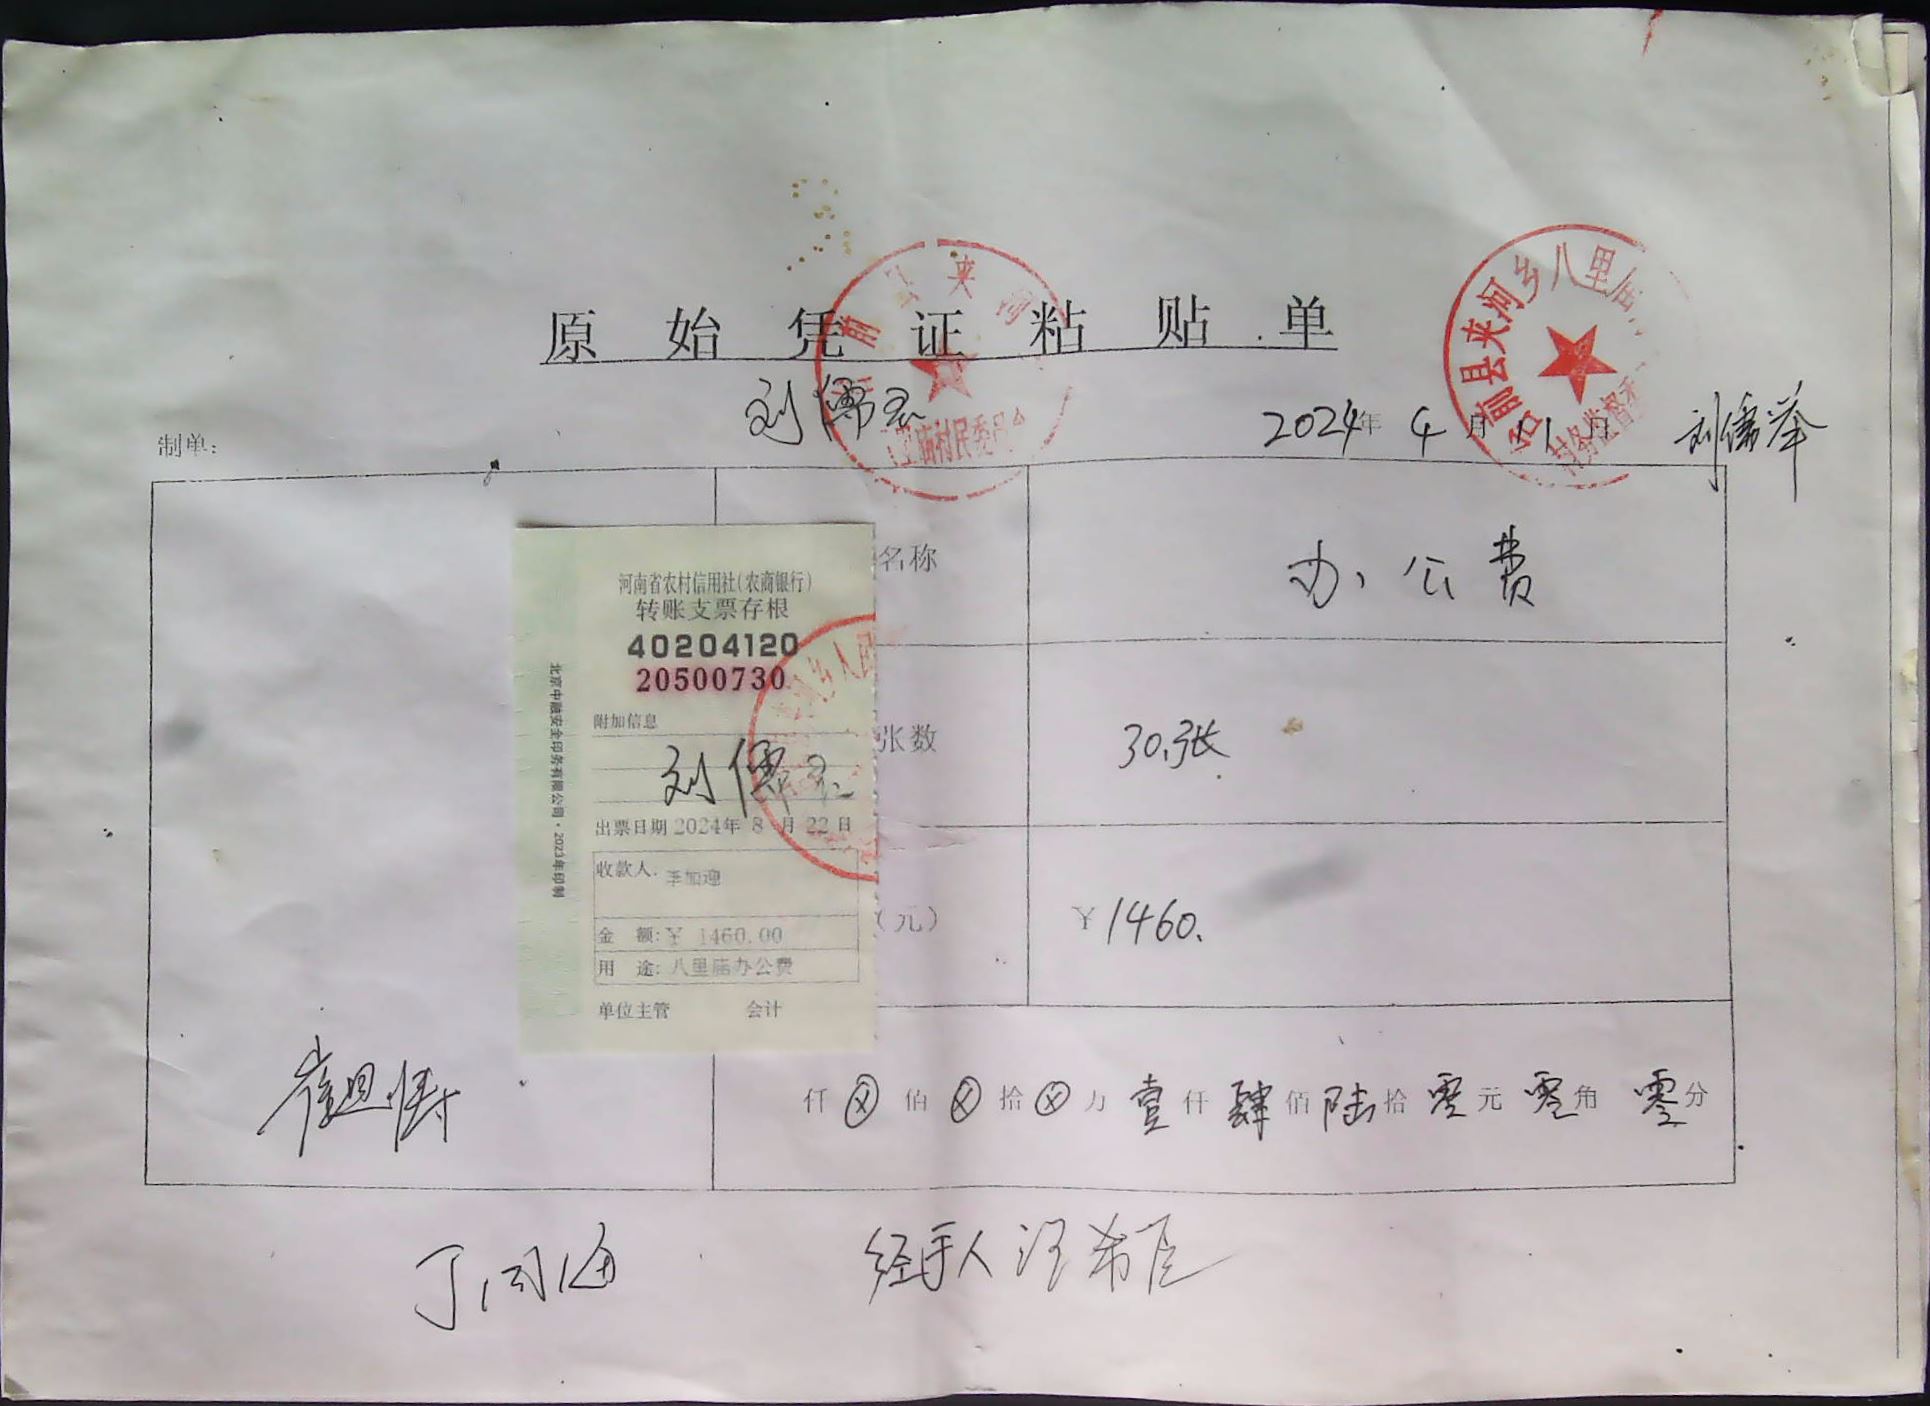 原始凭证粘贴单
制单:
2024年 4月11日
刘儒举
名称
办公费
张数
30张
(元)
¥1460.
仟ⓧ佰ⓧ拾ⓧ万壹仟肆佰陆拾零元零角零分
河南省农村信用社(农商银行)
转账支票存根
40204120
20500730
附加信息
出票日期 2024年 8月 22日
收款人: 李加迎
金 额:¥ 1460.00
用 途: 八里庙办公费
单位主管 会计
北京中融安全印务有限公司·2023年印制
县夹河
里庙村民委员会
台前县夹河乡八里庙
村务监督委
河乡人民
经手人